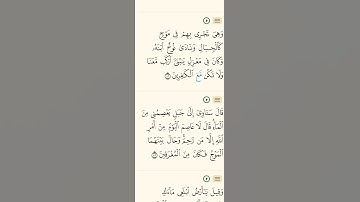 وَهِيَ تَجْرِى بِهِمْ فِى مَوْجٍ
كَٱلْجِبَالِ وَنَادَىٰ نُوحٌ ٱبْنَهُۥ
وَكَانَ فِى مَعْزِلٍ يَـٰبُنَىَّ ٱرْكَب مَّعَنَا
وَلَا تَكُن مَّعَ ٱلْكَـٰفِرِينَ
قَالَ سَـَٔاوِىٓ إِلَىٰ جَبَلٍ يَعْصِمُنِى مِنَ
ٱلْمَآءِ قَالَ لَا عَاصِمَ ٱلْيَوْمَ مِنْ أَمْرِ
ٱللَّهِ إِلَّا مَن رَّحِمَ وَحَالَ بَيْنَهُمَا
ٱلْمَوْجُ فَكَانَ مِنَ ٱلْمُغْرَقِينَ
وَقِيلَ يَـٰٓأَرْضُ ٱبْلَعِى مَآءَكِ